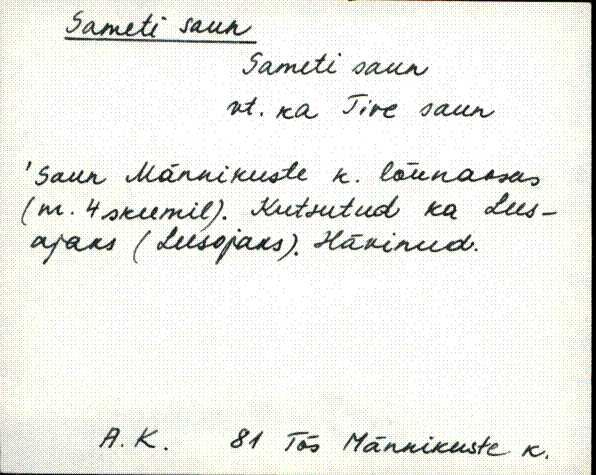 Sameti saun
Sameti saun
vt. ka Tire saun
'Saun Männikuste k. lõunaosas
(m. 4 skeemil). Kutsutud ka Lees-
ojaks (Leesojaks). Hävinud.
A. K. 81 Tõs Männikuste k.